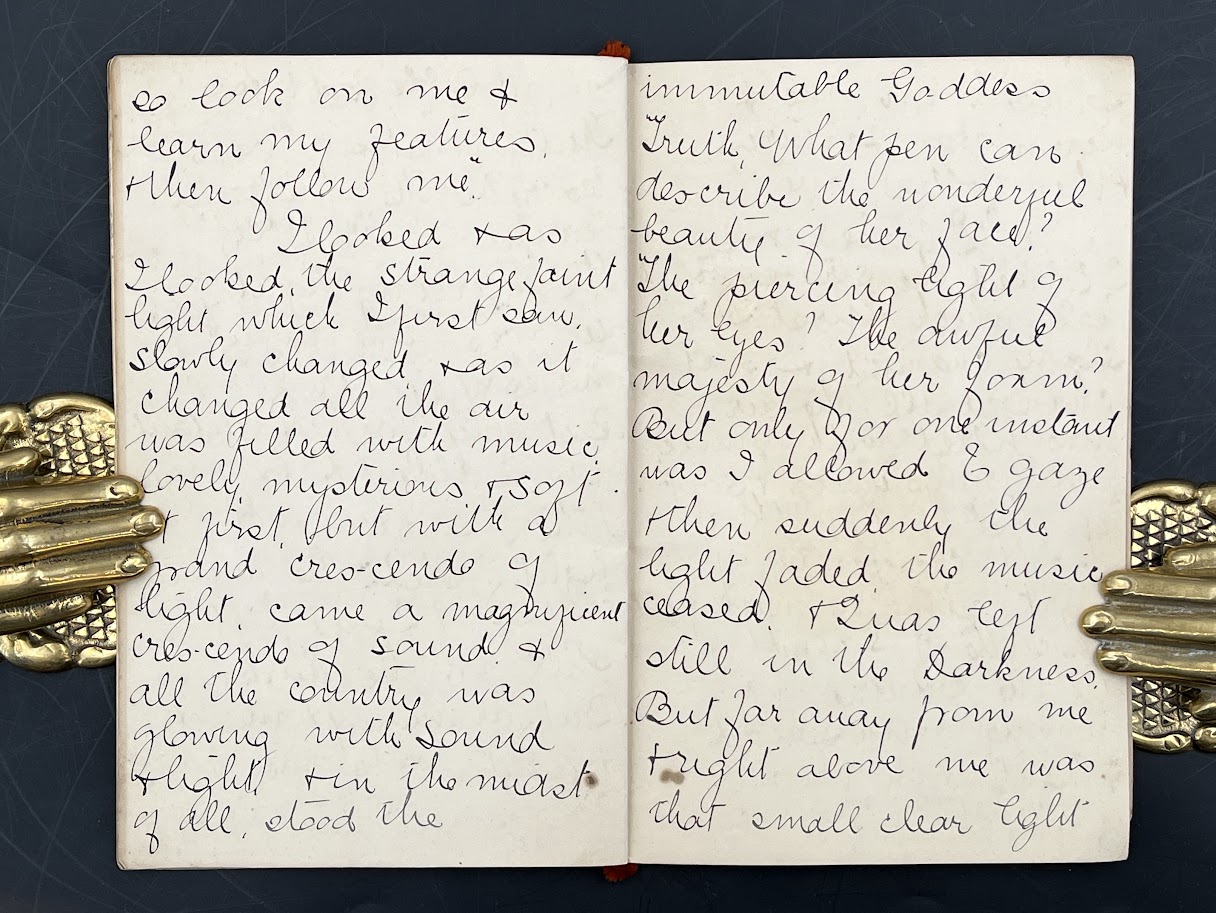 so look on me &
learn my features,
& then follow me"
I looked & as
I looked, the strange faint
light which I first saw,
slowly changed & as it
changed all the air
was filled with music,
lovely, mysterious & soft
t first, but with a
grand cres-cendo of
light, came a magnificent
cres-cendo of sound &
all the country was
glowing with sound
& light, & in the midst
of all, stood the
immutable Goddess
Truth, What pen can
describe the wonderful
beauty of her face?
The piercing light of
her eyes? The awful
majesty of her form?
But only for one instant
was I allowed to gaze
& then suddenly the
light faded the music
ceased, & I was left
still in the Darkness.
But far away from me
& right above me was
that small clear light